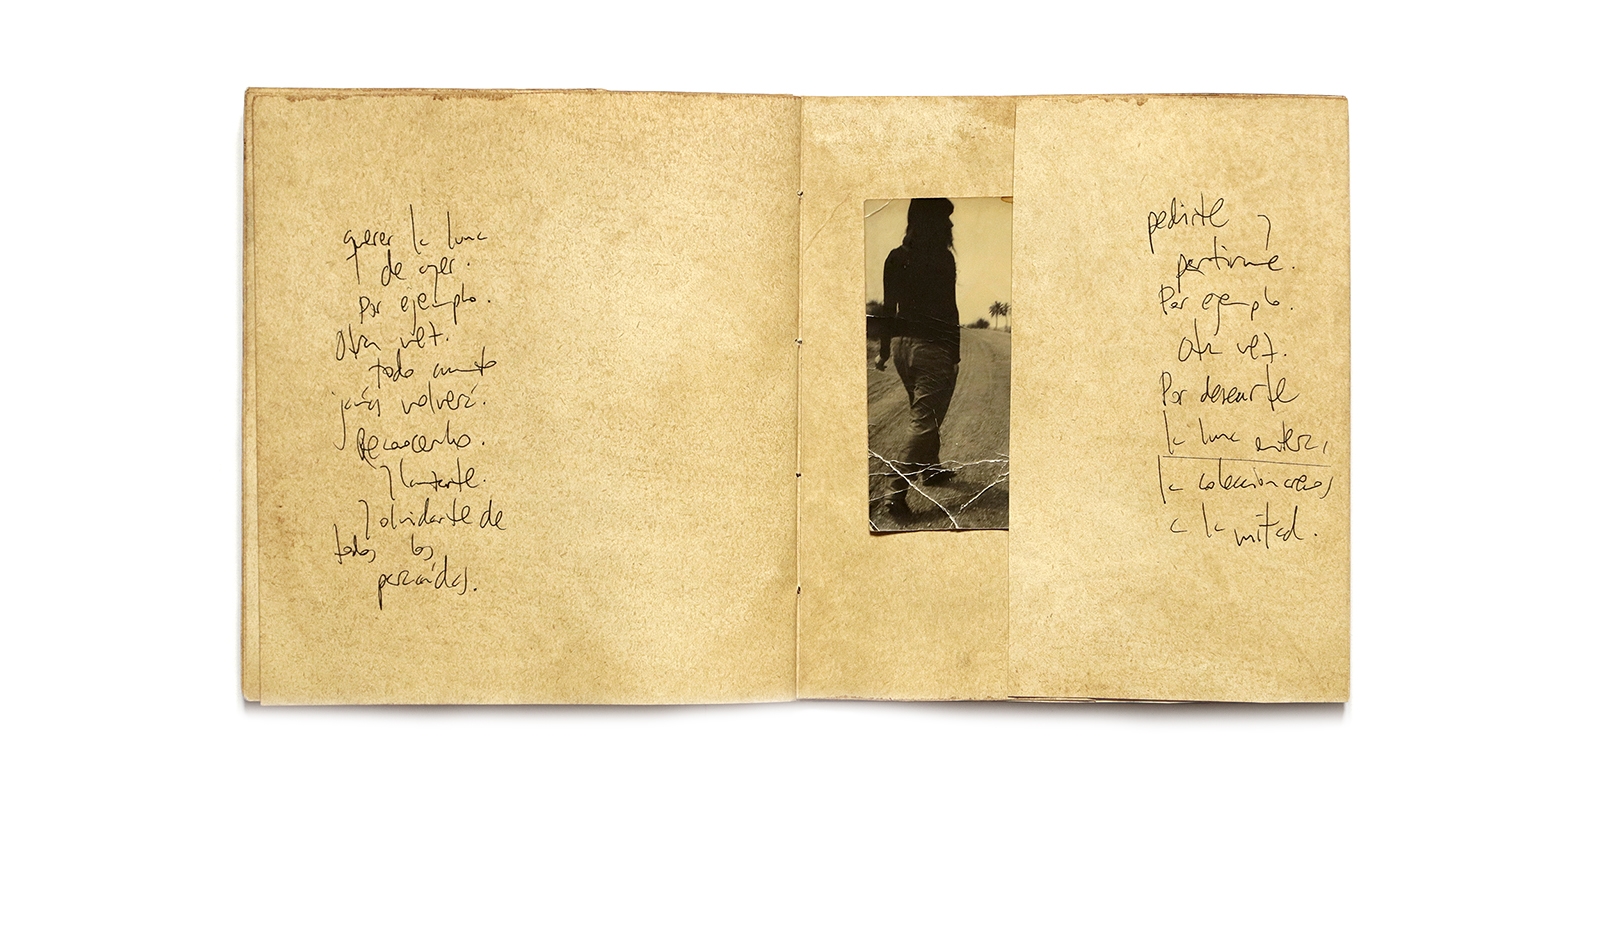 querer la luna
de ayer.
Por ejemplo.
Otra vez.
todo cuanto
jamás volverá.
Reconocerlo.
y
y olvidarte de
todos los
paraídas.
pedirte y
partirme.
Por ejemplo.
Otra vez.
Por desearte
la luna entera,
la colección
a la mitad.